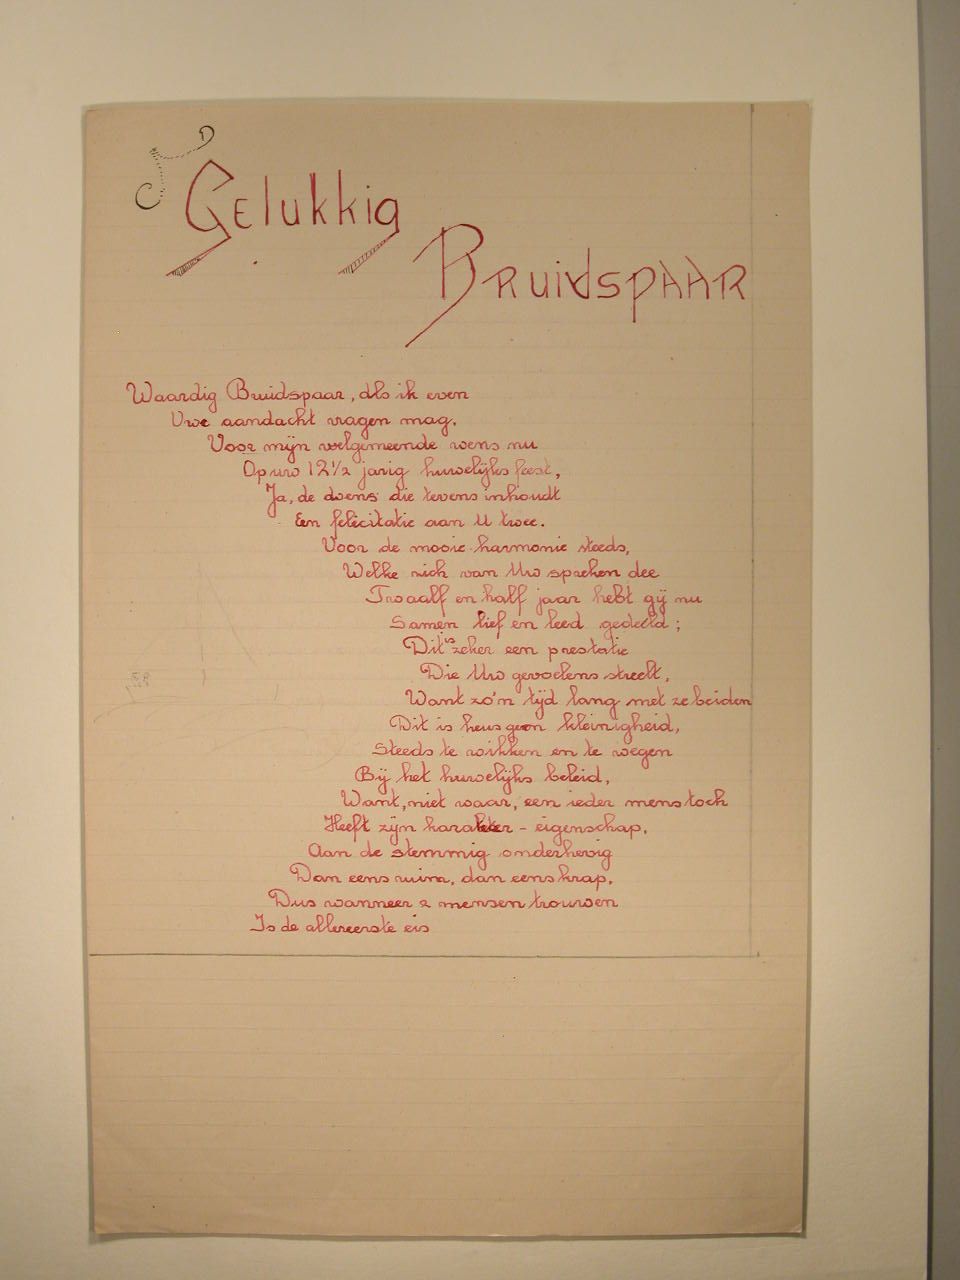 'T Gelukkig
Bruidspaar
Waardig Bruidspaar, als ik even
Uwe aandacht vragen mag.
Voor mijn welgemeende wens nu
Op uw 12½ jarig huwelijks feest,
Ja, de wens die tevens inhoudt
Een felicitatie aan U twee.
Voor de mooie harmonie steeds,
Welke mich van Uw spreken dee
Twaalf en half jaar hebt gij nu
Samen lief en leed gedeeld;
Dit is zeker een prestatie
Die Uw gevoelens streelt,
Want zo'n tijd lang met ze beiden
Dit is heus geen kleinigheid,
Steeds te wikken en te wegen
Bij het huwelijks beleid,
Want, niet waar, een ieder mens toch
Heeft zijn harakter - eigenschap.
Aan de stemmig onderhevig
Dan eens ruim, dan eens krap.
Dus wanneer 2 mensen trouwen
Is de allereerste eis